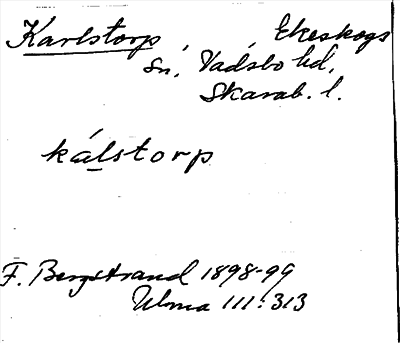 Karlstorp Ekeskogs
sn, Vadsbo hd,
Skarab. l.
kálstorp
F. Bergstrand 1898-99
Ulma 111:313